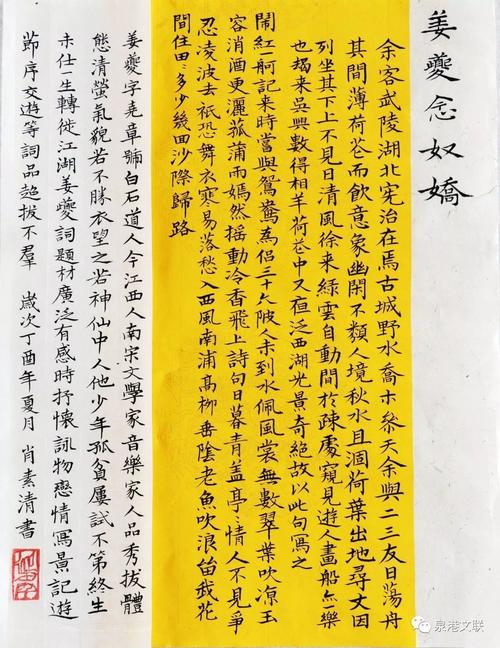 姜夔念奴嬌
余客武陵湖北宪治在焉古城野水喬木参天余與二三友日蕩舟
其間薄荷花而飲意象幽閑不類人境秋水且涸荷葉出地尋丈因
列坐其下上不見日清風徐来緑雲自動間於疎處窺見遊人畫船亦一樂
也朅来吳興數得相羊荷花中又夜泛西湖光景奇絕故以此句寫之
鬧紅一舸記来時嘗與鴛鴦為侣三十六陂人未到水佩風裳無數翠葉吹凉玉
容消酒更灑菰蒲雨嫣然摇動冷香飛上詩句日暮青盖亭亭情人不見爭
忍凌波去祇恐舞衣寒易落愁入西風南浦髙柳垂陰老魚吹浪留我花
間住田田多少幾回沙際歸路
姜夔字堯章號白石道人今江西人南宋文學家音樂家人品秀拔體
態清瑩氣貌若不勝衣望之若神仙中人他少年孤貧屢試不第終生
未仕一生轉徙江湖姜夔詞題材廣泛有感時抒懷詠物戀情寫景記遊
節序交遊等詞品超拔不羣 歲次丁酉年夏月 肖素清書
泉港文联